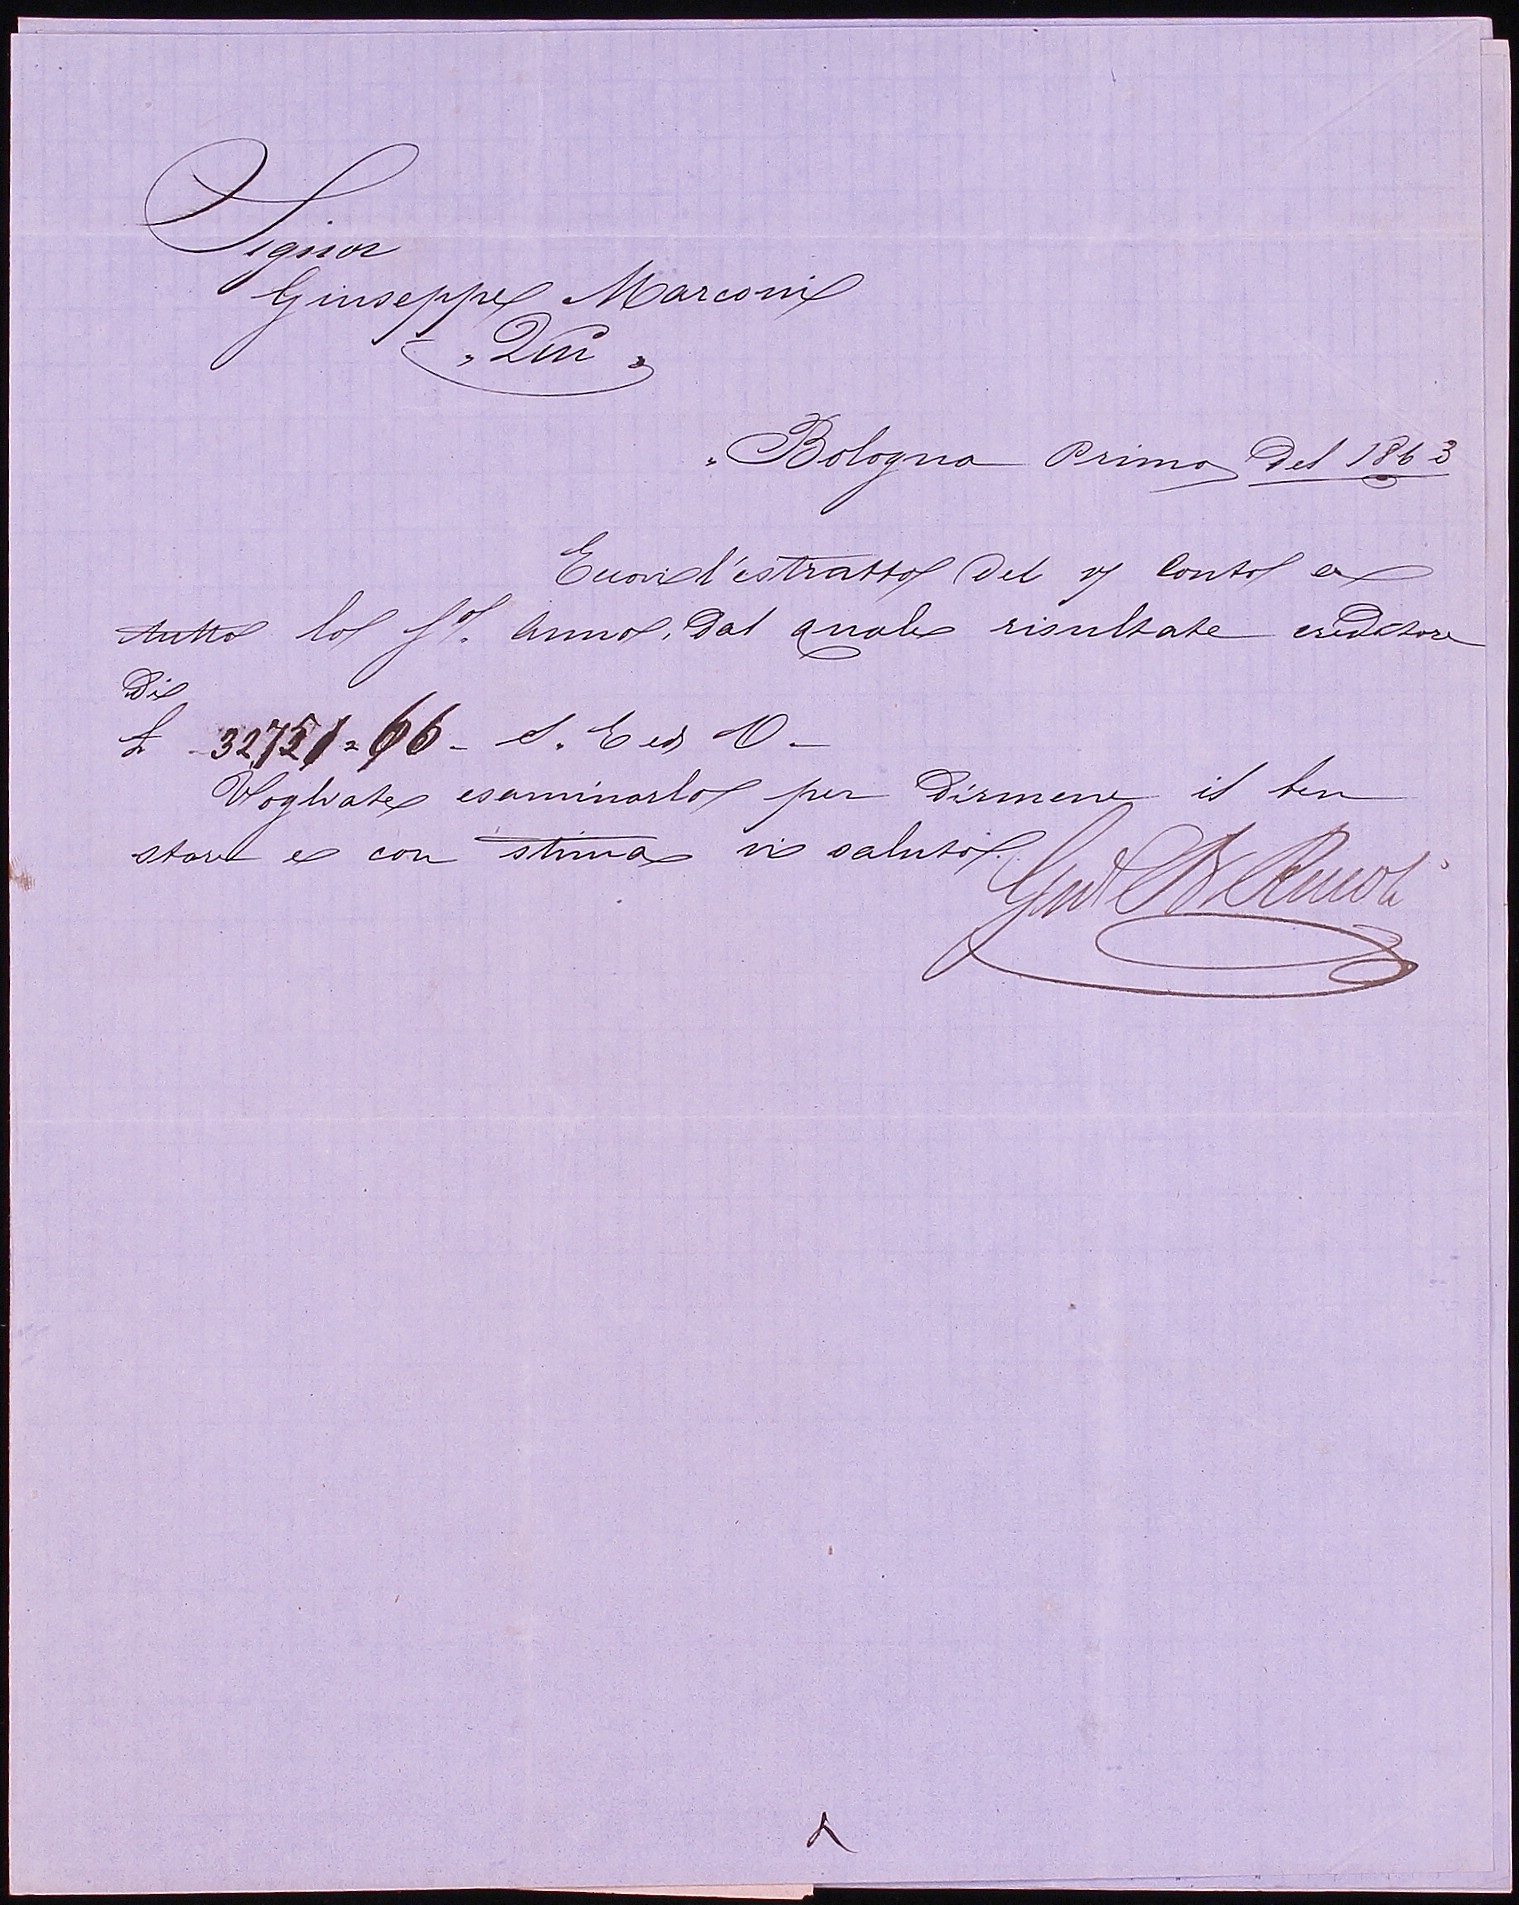 Signor
Giuseppe Marconi
„ Qui „
„ Bologna Primo Del 1863
Eccovi l'estratto Del vs Conto a
tutto lo Sº. Anno, Dal quale risultate creditore
Di
£ 32751=66 - S. E ed O -
Vogliate esaminarlo per Dirmene il ben
stare e con stima vi saluto.